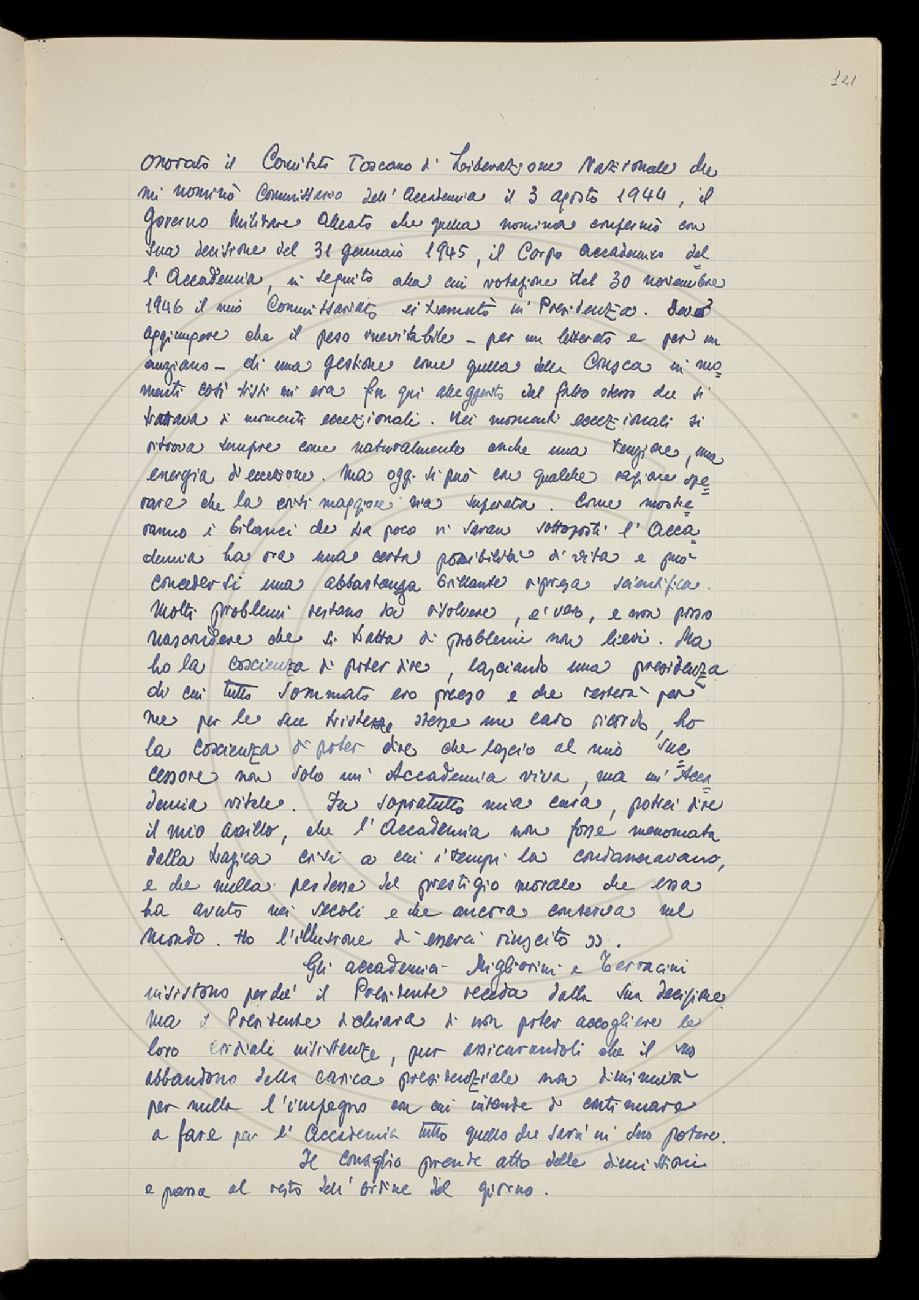 121
onorato il Comitato Toscano di Liberazione Nazionale che
mi nominò Commissario dell'Accademia il 3 agosto 1944, il
Governo Militare Alleato che quella nomina confermò con
sua decisione del 31 gennaio 1945, il Corpo accademico del
l'Accademia, in seguito alla cui votazione del 30 novembre
1946 il mio Commissariato si tramutò in Presidenza. Devo
aggiungere che il peso inevitabile – per un letterato e per un
anziano – di una gestione come quella della Crusca in mo=
menti così tristi mi era fin qui alleggerito dal fatto stesso che si
trattava di momenti eccezionali. Nei momenti eccezionali si
ritrova sempre come naturalmente anche una tensione, una
energia di eccezione. Ma oggi si può con qualche ragione spe=
rare che la crisi maggiore sia superata. Come mostre=
ranno i bilanci che tra poco vi saran sottoposti l'Acca=
demia ha ora una certa possibilità di vita e può
concedersi una abbastanza brillante ripresa scientifica.
Molti problemi restano da risolvere, è vero, e non posso
nascondere che si tratta di problemi non lievi. Ma
ho la coscienza di poter dire, lasciando una presidenza
di cui tutto sommato ero preso e che resterà per
me per le sue tristezze stesse un caro ricordo, ho
la coscienza di poter dire che lascio al mio suc=
cessore non solo un'Accademia viva, ma un'Acca=
demia vitale. Fu sopratutto mia cura, potrei dire
il mio assillo, che l'Accademia non fosse menomata
dalla tragica crisi a cui i tempi la condannavano,
e che nulla perdesse del prestigio morale che essa
ha avuto nei secoli e che ancora conserva nel
mondo. Ho l'illusione di esserci riuscito ».
Gli accademici Migliorini e Terracini
insistono perché il Presidente receda dalla sua decisione
Ma il Presidente dichiara di non poter accogliere le
loro cordiali insistenze, pur assicurandoli che il suo
abbandono della carica presidenziale non diminuirà
per nulla l'impegno con cui intende di continuare
a fare per l'Accademia tutto quello che sarà in suo potere.
Il Consiglio prende atto delle dimissioni
e passa al resto dell'ordine del giorno.